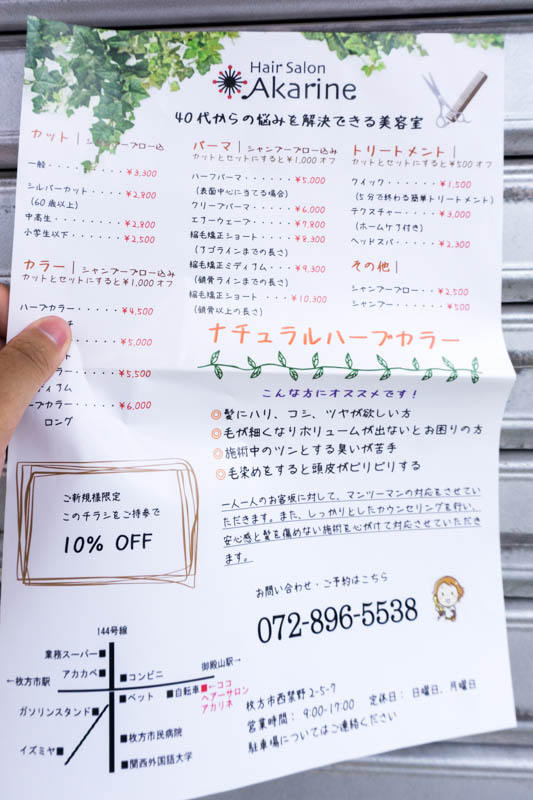 Hair Salon
Akarine
40代からの悩みを解決できる美容室
カット | シャンプーブロー込
一般・・・・・・・・・¥3,300
シルバーカット・・・・¥2,800
(60歳以上)
中高生・・・・・・・・¥2,800
小学生以下・・・・・・¥2,500
カラー | シャンプーブロー込み
カットとセットにすると¥1,000オフ
ハーブカラー・・・・¥4,500
¥5,000
¥5,500
ィアム
ブカラー・・・・・¥6,000
ロング
パーマ | シャンプーブロー込み
カットとセットにすると¥1,000オフ
ハーフパーマ・・・・・¥5,000
(表面中心に当てる場合)
クリープパーマ・・・・¥6,000
エアーウェーブ・・・・¥7,800
縮毛矯正ショート・・・¥8,300
(アゴラインまでの長さ)
縮毛矯正ミディアム・・・¥9,300
(鎖骨ラインまでの長さ)
縮毛矯正ショート・・・¥10,300
(鎖骨以上の長さ)
トリートメント |
カットとセットにすると¥500オフ
クイック・・・・・・¥1,500
(5分で終わる簡単トリートメント)
テクスチャー・・・・¥3,000
(ホームケア付き)
ヘッドスパ・・・・・¥2,300
その他 |
シャンプーブロー・・¥2,500
シャンプー・・・・・¥500
ナチュラルハーブカラー
こんな方にオススメです!
◎髪にハリ、コシ、ツヤが欲しい方
◎毛が細くなりボリュームが出ないとお困りの方
◎施術中のツンとする臭いが苦手
◎毛染めをすると頭皮がピリピリする
一人一人のお客様に対して、マンツーマンの対応をさせてい
ただきます。また、しっかりとしたカウンセリングを行い、
安心感と髪を傷めない施術を心がけて対応させていただき
ます。
ご新規様限定
このチラシをご持参で
10% OFF
お問い合わせ・ご予約はこちら
072-896-5538
144号線
業務スーパー■
アカカベ■
■コンビニ
御殿山駅→
←枚方市駅
■ペット
■自転車
■←ココ
ヘアーサロン
アカリネ
ガソリンスタンド■
■枚方市民病院
イズミヤ■
■関西外国語大学
枚方市西禁野2-5-7
営業時間: 9:00-17:00 定休日: 日曜日、月曜日
駐車場についてはご連絡ください